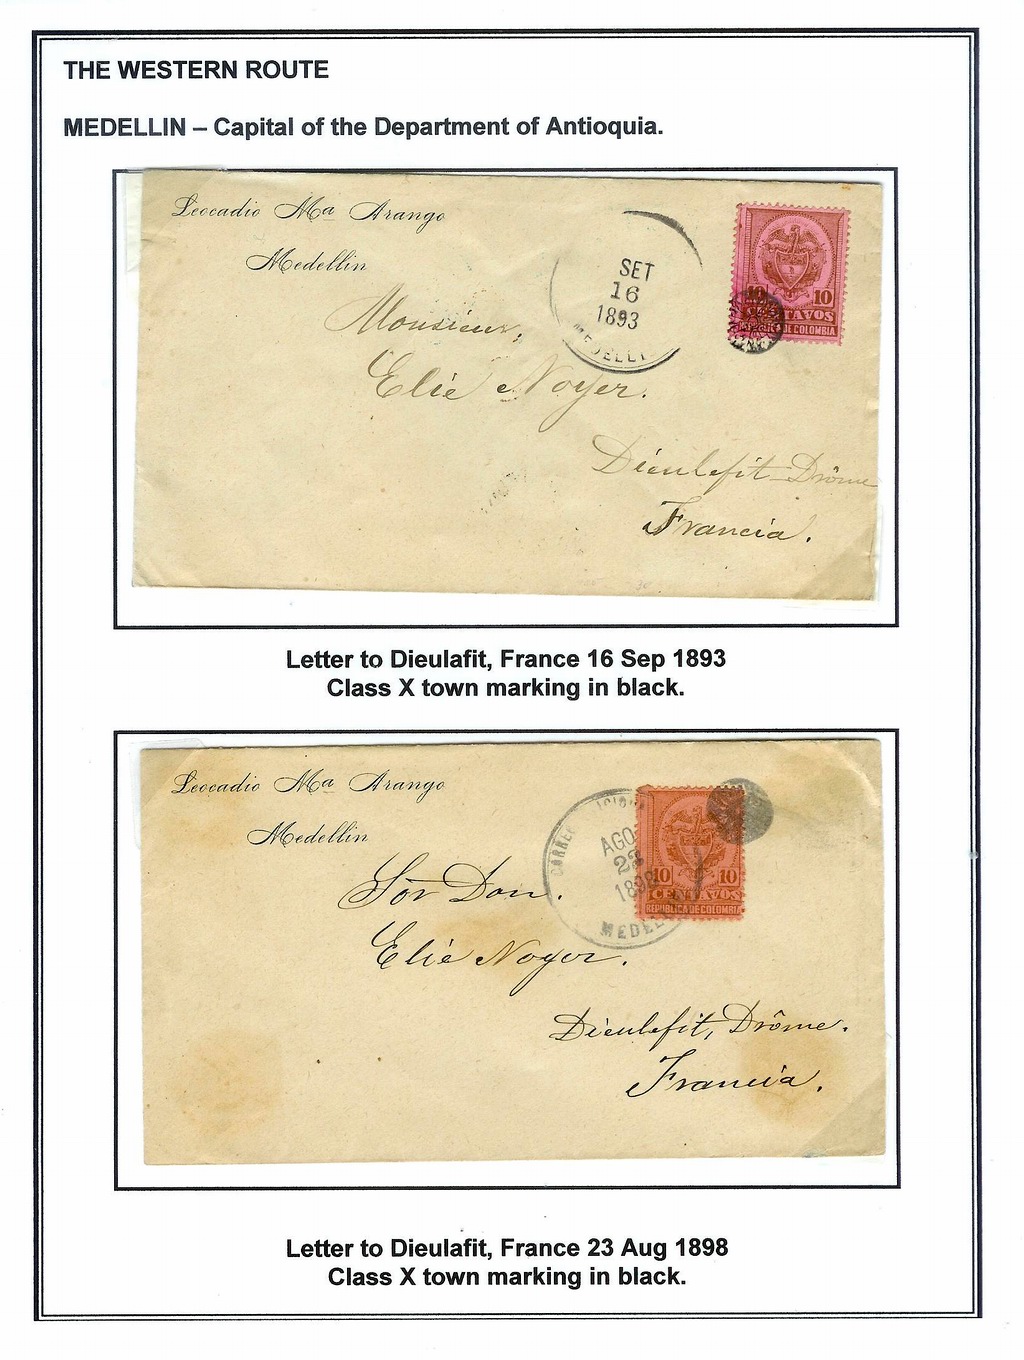 THE WESTERN ROUTE
MEDELLIN – Capital of the Department of Antioquia.
Leocadio Mª Arango
Medellin
SET
16
1893
MEDELLI
10
CENTAVOS
DE COLOMBIA
Monsieur,
Elie Noyer.
Dieulefit Drôme
Francia.
Letter to Dieulafit, France 16 Sep 1893
Class X town marking in black.
Leocadio Mª Arango
Medellin
CORREO
AGO
23
1898
MEDEL
10 10
CENTAVOS
REPUBLICA DE COLOMBIA
Sor Don.
Elie Noyer.
Dieulefit, Drôme.
Francia.
Letter to Dieulafit, France 23 Aug 1898
Class X town marking in black.